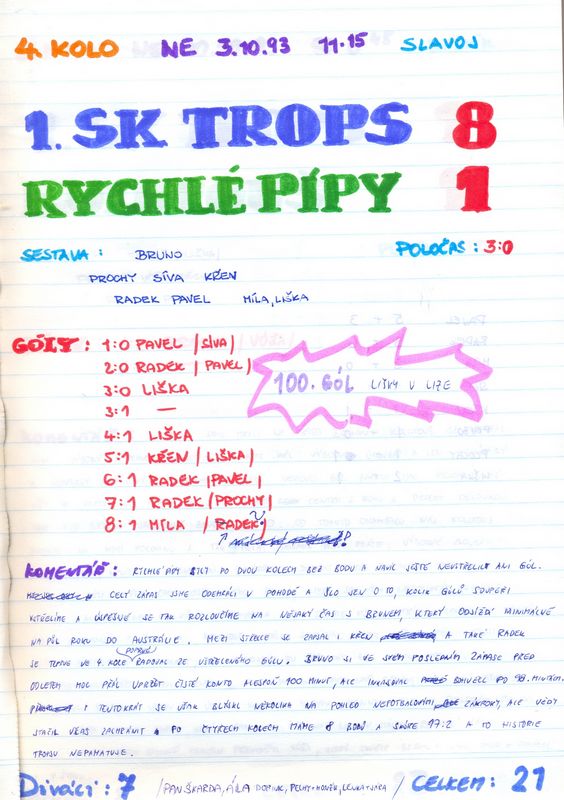 4. KOLO NE 3.10.93 11.15 SLAVOJ
1. SK TROPS 8
RYCHLÉ PÍPY 1
SESTAVA: BRUNO POLOČAS: 3:0
PROCHY SÍVA KŘEN
RADEK PAVEL MÍLA, LIŠKA
GÓLY: 1:0 PAVEL /SÍVA/
2:0 RADEK /PAVEL/
3:0 LIŠKA
100. GÓL LIŠKY V LIZE
3:1 —
4:1 LIŠKA
5:1 KŘEN /LIŠKA/
6:1 RADEK /PAVEL/
7:1 RADEK /PROCHY/
8:1 MÍLA /RADEK?/
KOMENTÁŘ: RYCHLÉ PÍPY BYLY PO DVOU KOLECH BEZ BODU A NAVÍC JEŠTĚ NEVSTŘELILY ANI GÓL.
CELÝ ZÁPAS JSME ODEHRÁLI V POHODĚ A ŠLO JEN O TO, KOLIK GÓLŮ SOUPEŘI
VSTŘELÍME A ÚSPĚŠNĚ SE TAK ROZLOUČÍME NA NĚJAKÝ ČAS S BRUNEM, KTERÝ ODJÍŽDÍ MINIMÁLNĚ
NA PŮL ROKU DO AUSTRÁLIE. MEZI STŘELCE SE ZAPSAL I KŘEN A TAKÉ RADEK
SE TEPRVE VE 4 KOLE POPRVÉ RADOVAL ZE VSTŘELENÉHO GÓLU. BRUNO SI VE SVÉM POSLEDNÍM ZÁPASE PŘED
ODLETEM MOC PŘÁL UDRŽET ČISTÉ KONTO ALESPOŇ 100 MINUT, ALE INKASOVAL BOHUŽEL PO 98. MINUTÁCH.
I TENTOKRÁT SE VŠAK BLÝSKL NĚKOLIKA NA POHLED NEFOTBALOVÝMI ZÁKROKY, ALE VŽDY
STAČIL VČAS ZACHRÁNIT. PO ČTYŘECH KOLECH MÁME 8 BODŮ A SKÓRE 17:2 A TO HISTORIE
TROPSU NEPAMATUJE.
DIVÁCI: 7 /PAN ŠKARDA, PECHY, LENKA / CELKEM: 21